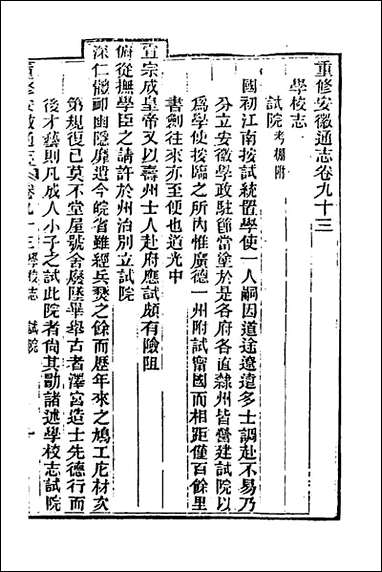 重修安徽通志卷九十三
學校志
試院考棚附
國初江南按試統置學使一人嗣因道途遼遠多士調赴不易乃
分立安徽學政駐節當塗於是各府各直隸州皆營建試院以
爲學使按臨之所內惟廣德一州附試甯國而相距僅百餘里
書劍往來亦至便也道光中
宣宗成皇帝又以壽州士人赴府應試頗有險阻
俯從撫學臣之請許於州治別立試院
深仁儆卹幽隱靡遺今皖省雖經兵燹之餘而歷年來之鳩工庀材亥
第規復已莫不堂屋號舍廢墜畢舉古者澤宮造士先德行而
後才藝則凡成人小子之試此院者尙其勖諸述學校志試院
重修安徽通志 卷九十三 學校志 試院 一